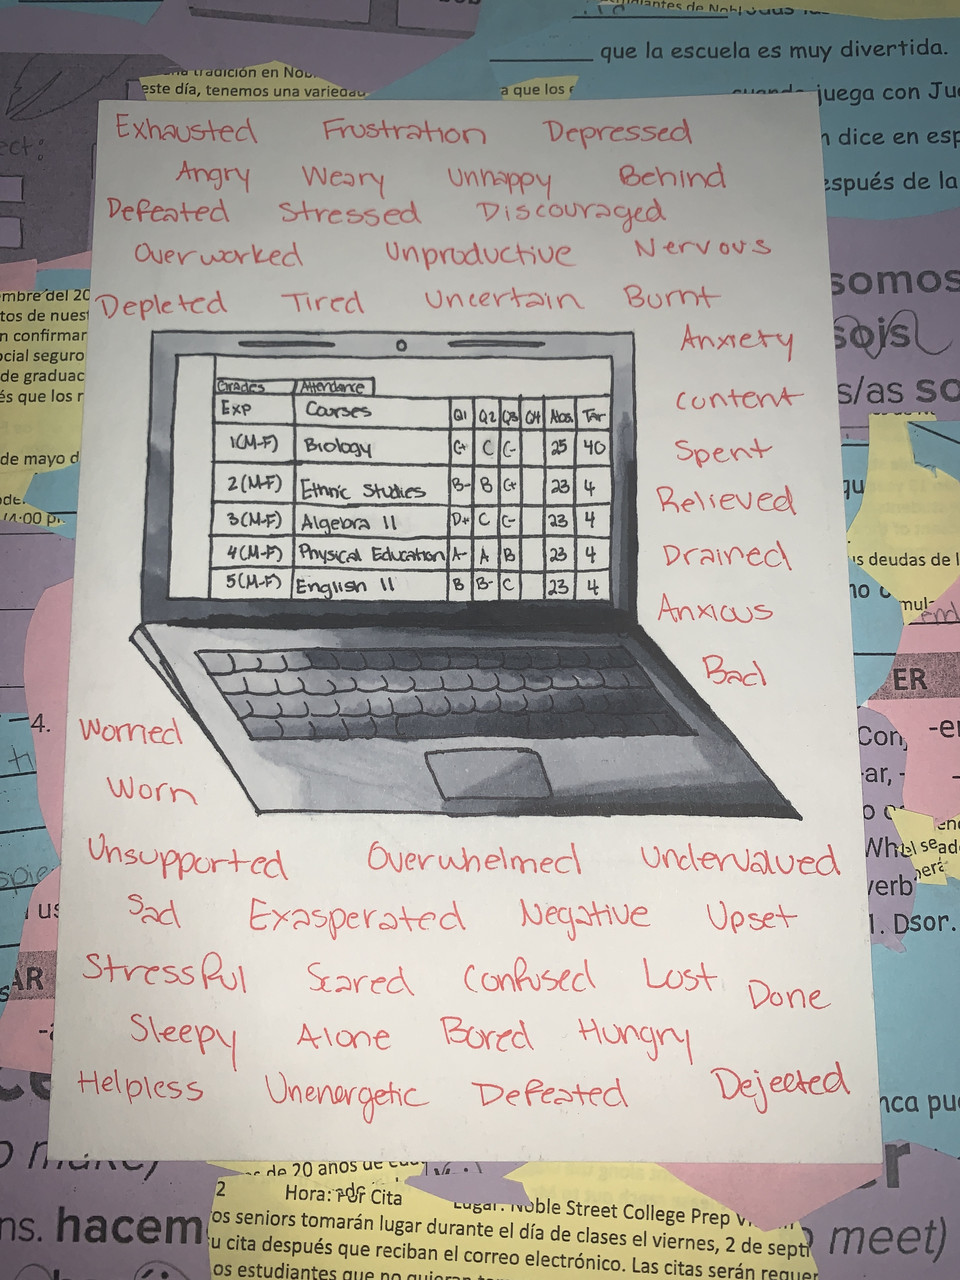 que la escuela es muy divertida.
tradición en
este día, tenemos una variedad
a que los
juega con
dice en
después de la
Exhausted Frustration Depressed
Angry Weary Unhappy Behind
Defeated Stressed Discouraged
Overworked Unproductive Nervous
Depleted Tired Uncertain Burnt
somos
sois
s/as
Anxiety
content
Spent
Relieved
Drained
Anxious
Bad
Grades Attendance
Exp Courses Q1 Q2 Q3 Q4 Abs Tar
1(M-F) Biology C+ C C- 25 40
2(M-F) Ethnic Studies B- B C+ 23 4
3(M-F) Algebra II D+ C C- 23 4
4(M-F) Physical Education A- A B 23 4
5(M-F) English II B B- C 23 4
del 20
tos de
n confirmar
ocial seguro
de
és que los
de mayo
4.
us
AR
deudas de
ER
-ar, -
verb
1. Dsor.
Worried
Worn
Unsupported Overwhelmed Undervalued
Sad Exasperated Negative Upset
Stressful Scared Confused Lost Done
Sleepy Alone Bored Hungry
Helpless Unenergetic Defeated Dejected
nca
de 20 años de
2 Hora: Cita Lugar: Noble Street College Prep
ns. hacem
os seniors tomarán lugar durante el día de clases el viernes, 2 de septi
u cita después que reciban el correo electrónico. Las citas serán requer
os estudiantes que no
meet)